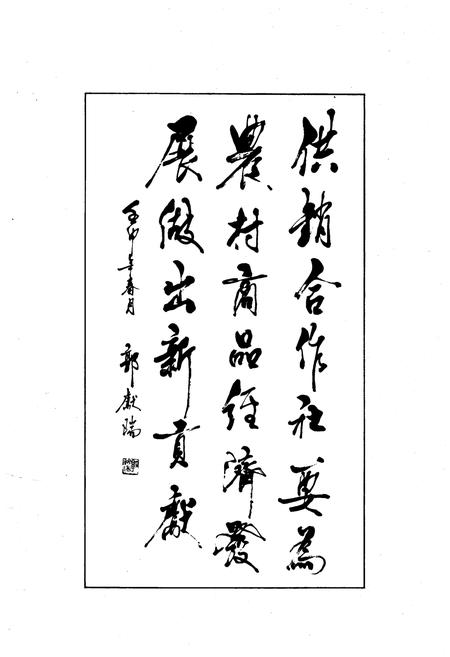 供銷合作社要為
農村商品經濟發
展做出新貢獻
壬申年春月
郭獻瑞